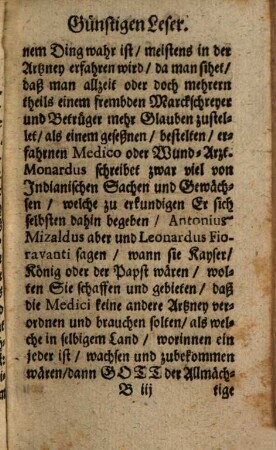 Günstigen Leser.
nem Ding wahr ist / meistens in der
Artzney erfahren wird / da man sihet /
daß man allzeit oder doch mehrern
theils einem frembden Marckschreyer
und Betrüger mehr Glauben zustel-
let / als einem geseßnen / bestelten / er-
fahrnen Medico oder Wund-Artzt.
Monardus schreibet zwar viel von
Indianischen Sachen und Gewäch-
sen / welche zu erkundigen Er sich
selbsten dahin begeben / Antonius
Mizaldus aber und Leonardus Fio-
ravanti sagen / wann sie Kayser /
König oder der Papst wären / wol-
ten Sie schaffen und gebieten / daß
die Medici keine andere Artzney ver-
ordnen und brauchen solten / als wel-
che in selbigem Land / worinnen ein
jeder ist / wachsen und zubekommen
wären / dann GOTT der Allmäch-
B iij tige